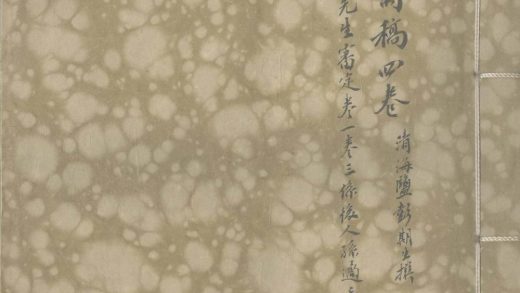 稿四卷 清海鹽彭期生撰
先生審定卷一卷三係後人孫遹